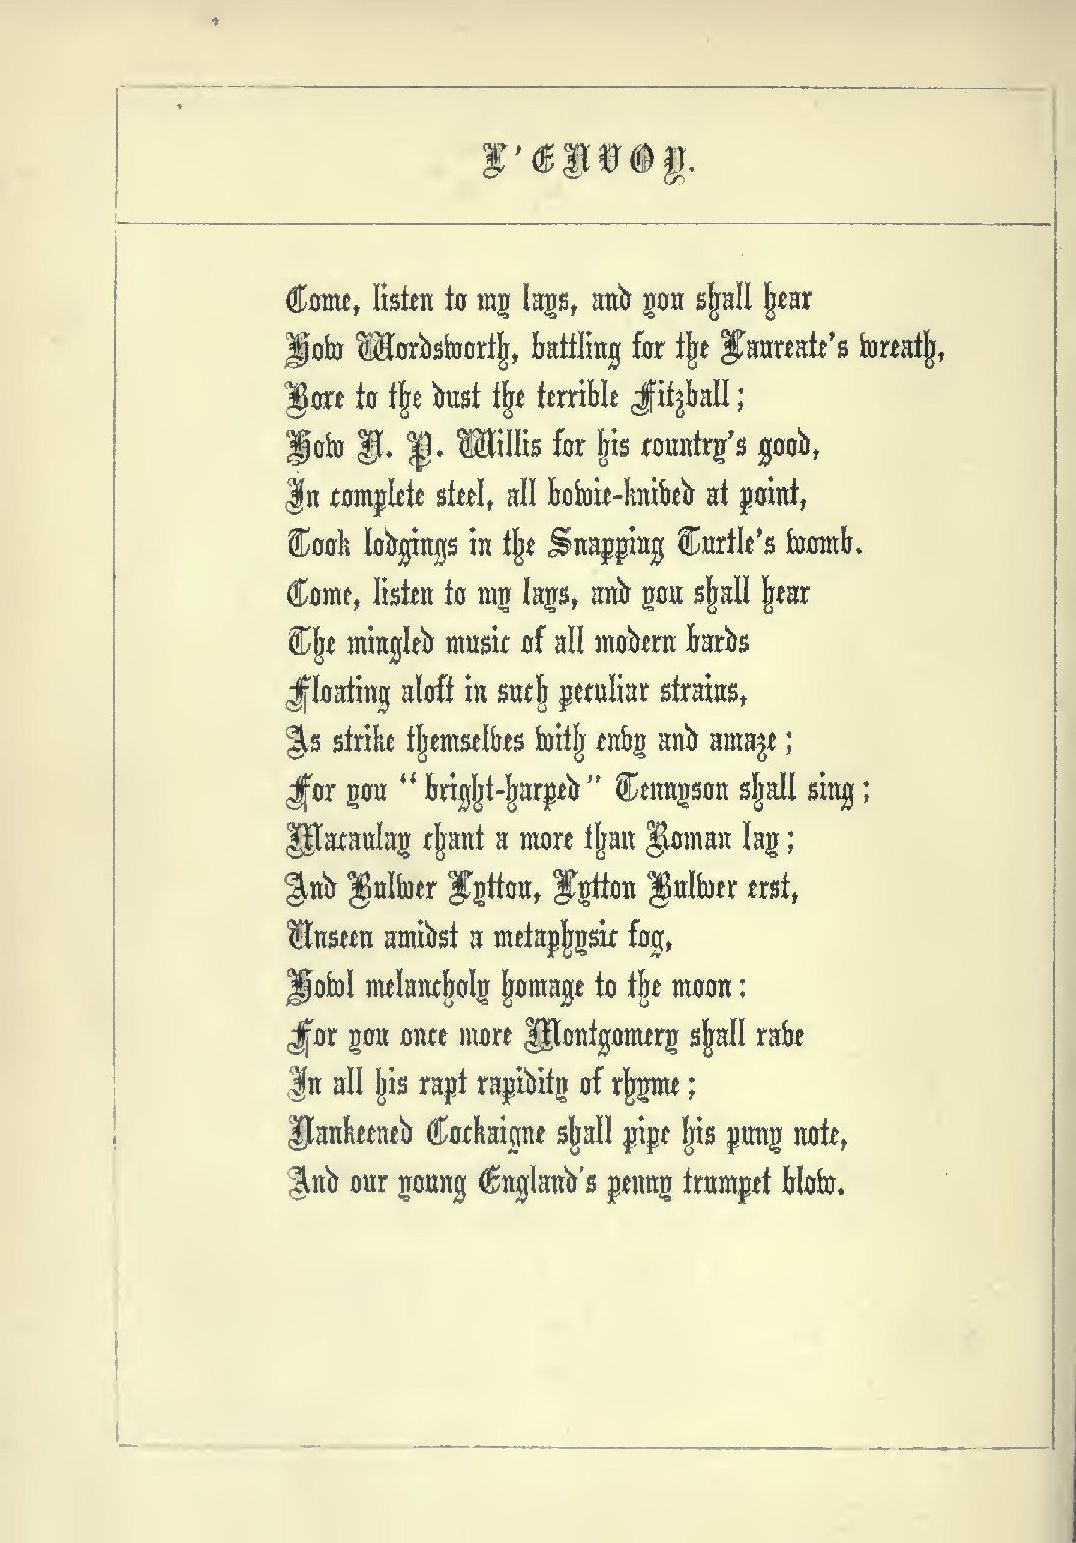 L'ENVOY.
Come, listen to my lays, and you shall hear
How Wordsworth, battling for the Laureate's wreath,
Bore to the dust the terrible Fitzball;
How N. P. Willis for his country's good,
In complete steel, all bowie-knived at point,
Took lodgings in the Snapping Turtle's womb.
Come, listen to my lays, and you shall hear
The mingled music of all modern bards
Floating aloft in such peculiar strains,
As strike themselves with envy and amaze;
For you “bright-harped” Tennyson shall sing;
Macaulay chant a more than Roman lay;
And Bulwer Lytton, Lytton Bulwer erst,
Unseen amidst a metaphysic fog,
Howl melancholy homage to the moon:
For you once more Montgomery shall rave
In all his rapt rapidity of rhyme;
Nankeened Cockaigne shall pipe his puny note,
And our young England's penny trumpet blow.